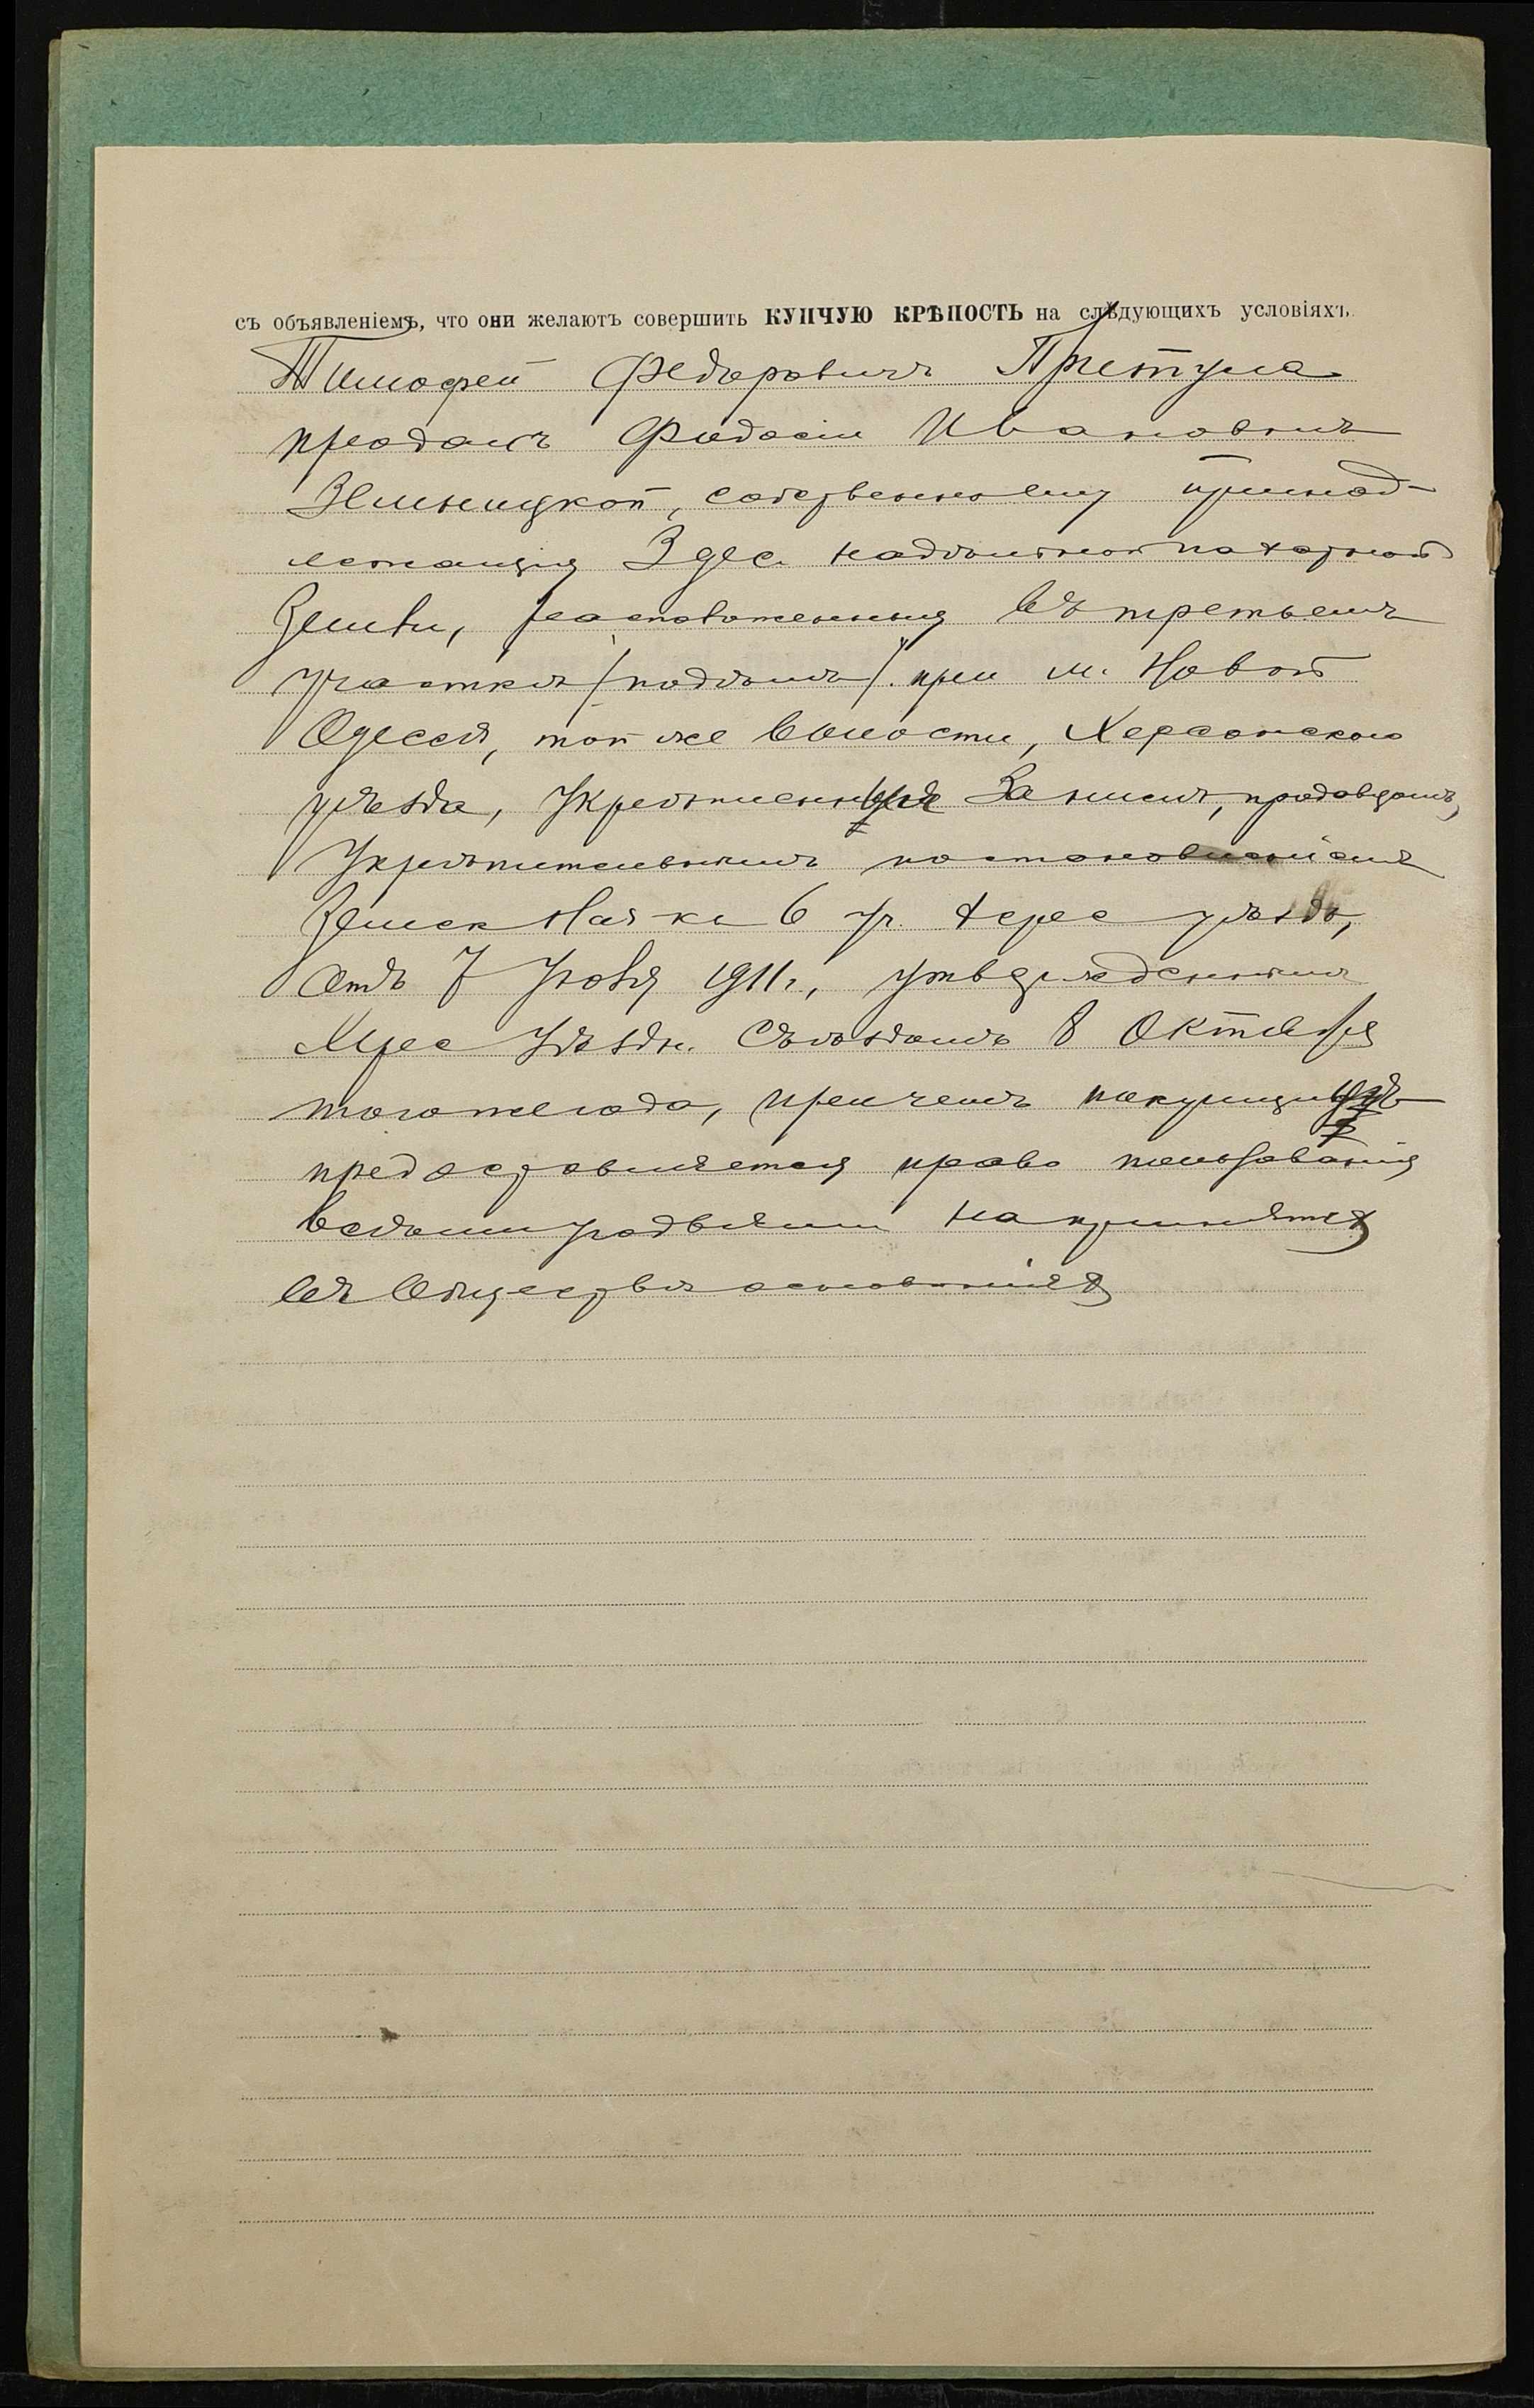 съ объявленіемъ, что они желаютъ совершить КУПЧУЮ КРѢПОСТЬ на слѣдующихъ условіяхъ.
Тимофей Федоровичъ Притула
продалъ Феодосіи Ивановнѣ
Зелиницкой, собственно ему принад-
лежащія 3 дес. надѣльной пахатной
Земли, расположенныя въ третьемъ
участкѣ /подѣлѣ/ при м. Новой
Одессѣ, той же волости, Херсонскаго
уѣзда, Укрѣпленныя За нимъ, продавцомъ,
Укрѣпительнымъ постановленіемъ
Земск Нач-ка 6 уч. Херс уѣзда,
Отъ 7 Іюля 1911 г., утвержденнымъ
Херс Уѣздн. Съѣздомъ 8 Октября
тогоже года, причемъ покупщицѣ
предоставляется право пользованія
всѣми угодьями на принятыхъ
въ Обществѣ основаніяхъ